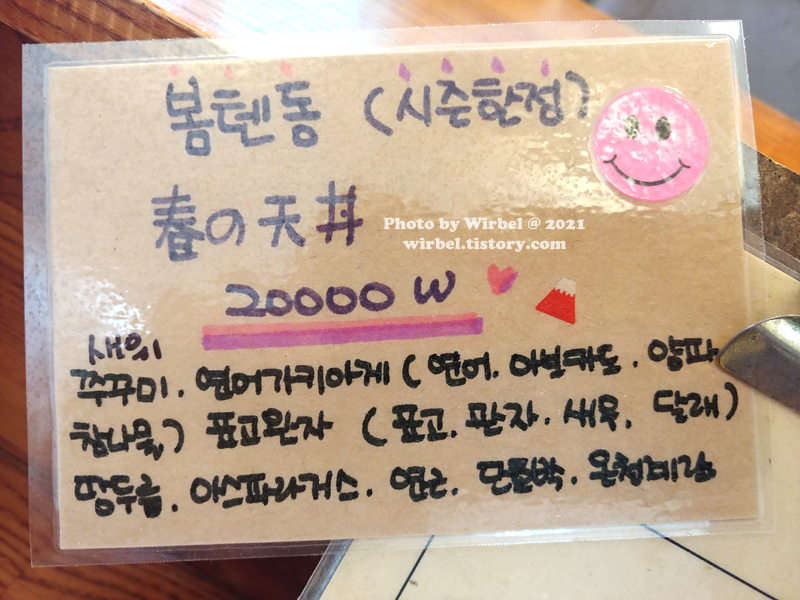 봄텐동 (시즌한정)
春の天丼
Photo by Wirbel @ 2021
wirbel.tistory.com
20000 W
새우
쭈꾸미. 연어가키아게 (연어. 아보카도. 양파
참나물) 표고완자 (표고. 관자. 새우. 달래)
땅두릅. 아스파라거스. 연근. 단호박. 온천계란